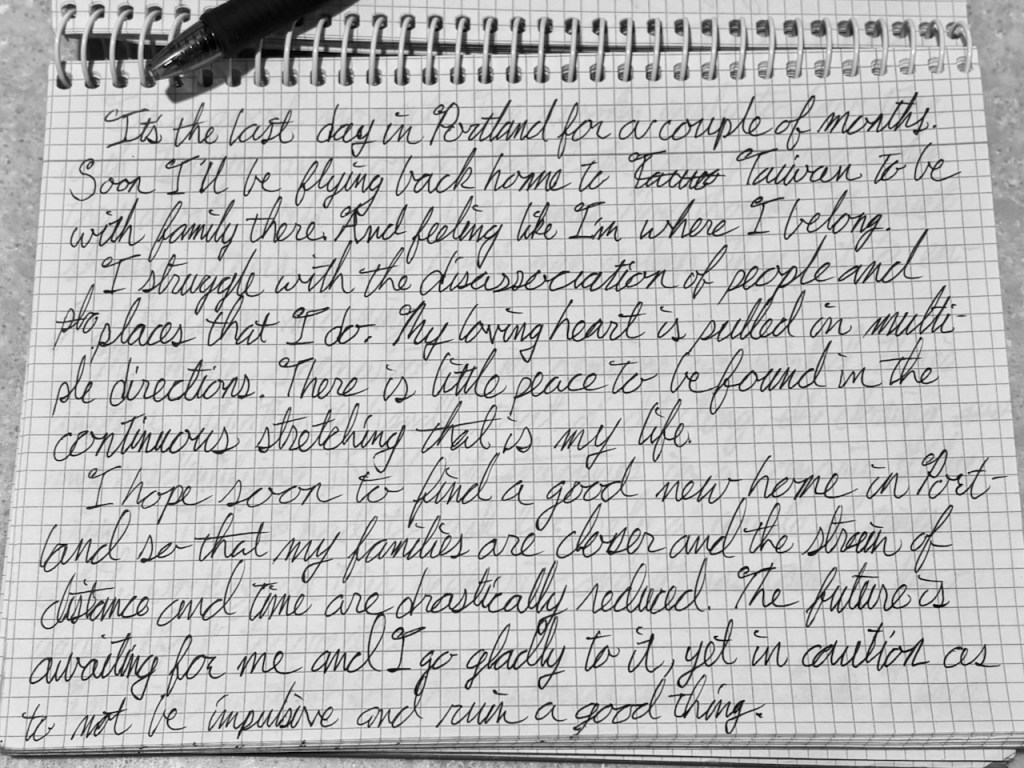 It's the last day in Portland for a couple of months.
Soon I'll be flying back home to Taiwan to be
with family there. And feeling like I'm where I belong.
I struggle with the disassociation of people and
places that I do. My loving heart is pulled in multi-
ple directions. There is little peace to be found in the
continuous stretching that is my life.
I hope soon to find a good new home in Port-
land so that my families are closer and the strain of
distance and time are drastically reduced. The future is
awaiting for me and I go gladly to it, yet in caution as
to not be impulsive and ruin a good thing.